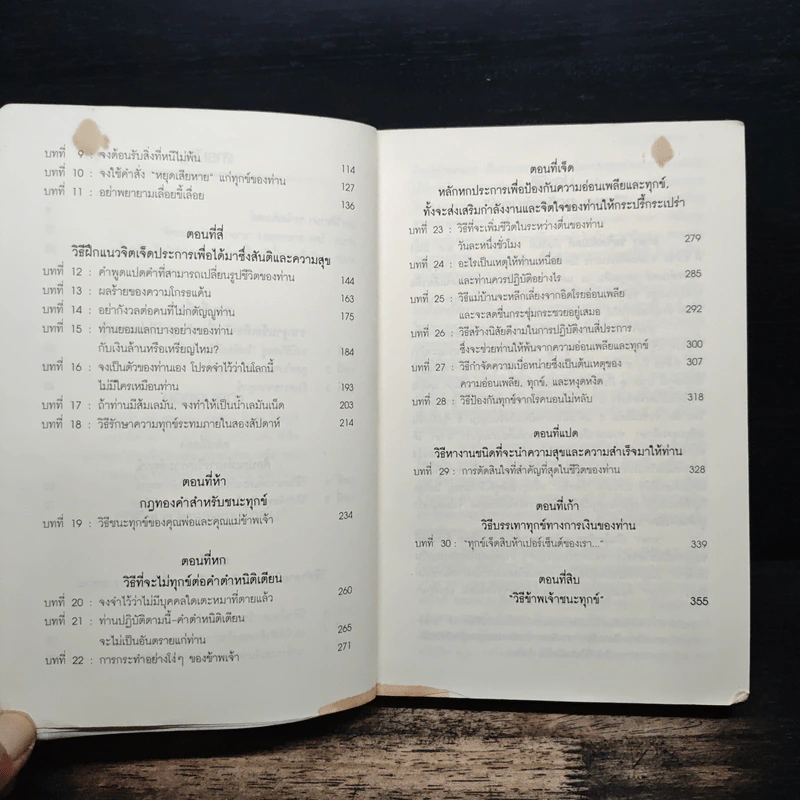 บทที่ 9 : จงต้อนรับสิ่งที่หนีไม่พ้น 114
บทที่ 10 : จงใช้คำสั่ง "หยุดเสียหาย" แก่ทุกข์ของท่าน 127
บทที่ 11 : อย่าพยายามเลื่อยขี้เลื่อย 136
ตอนที่สี่
วิธีฝึกแนวจิตเจ็ดประการเพื่อได้มาซึ่งสันติและความสุข
บทที่ 12 : คำพูดแปดคำที่สามารถเปลี่ยนรูปชีวิตของท่าน 144
บทที่ 13 : ผลร้ายของความโกรธแค้น 163
บทที่ 14 : อย่ากังวลต่อคนที่ไม่กตัญญูท่าน 175
บทที่ 15 : ท่านยอมแลกบางอย่างของท่าน
กับเงินล้านหรือเหรียญไหม? 184
บทที่ 16 : จงเป็นตัวของท่านเอง โปรดจำไว้ว่าในโลกนี้
ไม่มีใครเหมือนท่าน 193
บทที่ 17 : ถ้าท่านมีส้มเลมัน, จงทำให้เป็นน้ำเลมันเน็ด 203
บทที่ 18 : วิธีรักษาความทุกข์ระทมภายในสองสัปดาห์ 214
ตอนที่ห้า
กฎทองคำสำหรับชนะทุกข์
บทที่ 19 : วิธีชนะทุกข์ของคุณพ่อและคุณแม่ข้าพเจ้า 234
ตอนที่หก
วิธีที่จะไม่ทุกข์ต่อคำตำหนิติเตียน
บทที่ 20 : จงจำไว้ว่าไม่มีบุคคลใดเตะหมาที่ตายแล้ว 260
บทที่ 21 : ท่านปฏิบัติตามนี้-คำตำหนิติเตียน
จะไม่เป็นอันตรายแก่ท่าน 265
บทที่ 22 : การกระทำอย่างโง่ๆ ของข้าพเจ้า 271
ตอนที่เจ็ด
หลักหกประการเพื่อป้องกันความอ่อนเพลียและทุกข์,
ทั้งจะส่งเสริมกำลังงานและจิตใจของท่านให้กระปรี้กระเปร่า
บทที่ 23 : วิธีที่จะเพิ่มชีวิตในระหว่างตื่นของท่าน
วันละหนึ่งชั่วโมง 279
บทที่ 24 : อะไรเป็นเหตุให้ท่านเหนื่อย
และท่านควรปฏิบัติอย่างไร 285
บทที่ 25 : วิธีแม่บ้านจะหลีกเลี่ยงจากอิดโรยอ่อนเพลีย
และจะสดชื่นกระชุ่มกระชวยอยู่เสมอ 292
บทที่ 26 : วิธีสร้างนิสัยดีงามในการปฏิบัติงานสี่ประการ
ซึ่งจะช่วยท่านให้พ้นจากความอ่อนเพลียและทุกข์ 300
บทที่ 27 : วิธีกำจัดความเบื่อหน่ายซึ่งเป็นต้นเหตุของ 307
ความอ่อนเพลีย, ทุกข์, และหงุดหงิด
บทที่ 28 : วิธีป้องกันทุกข์จากโรคนอนไม่หลับ 318
ตอนที่แปด
วิธีหางานชนิดที่จะนำความสุขและความสำเร็จมาให้ท่าน
บทที่ 29 : การตัดสินใจที่สำคัญที่สุดในชีวิตของท่าน 328
ตอนที่เก้า
วิธีบรรเทาทุกข์ทางการเงินของท่าน
บทที่ 30 : "ทุกข์เจ็ดสิบห้าเปอร์เซ็นต์ของเรา..." 339
ตอนที่สิบ
"วิธีข้าพเจ้าชนะทุกข์" 355